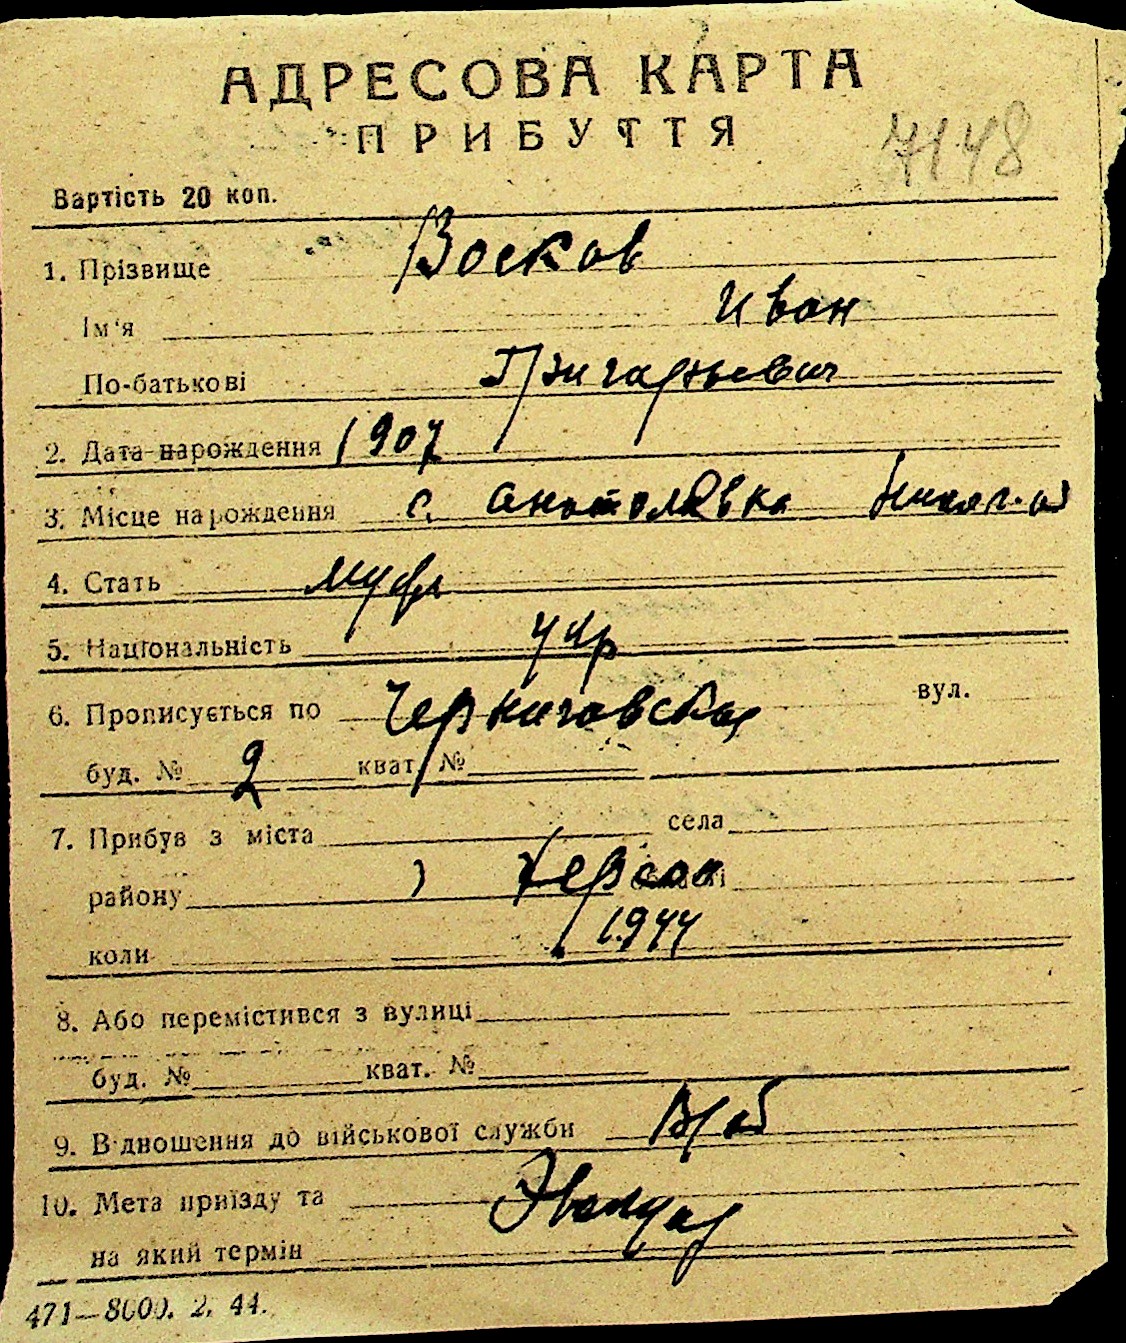 АДРЕСОВА КАРТА
ПРИБУТТЯ
7148
Вартість 20 коп.
1. Прізвище Восков
Ім'я Иван
По-батькові Григорьевич
2. Дата нарождення 1907
3. Місце нарождення с. Анатолявка
4. Стать муж
5. Національність укр
6. Прописується по Черниговская вул.
буд. № 2 кват. №
7. Прибув з міста села
району Херсон області
коли 1944
8. Або перемістився з вулиці
буд. № кват. №
9. Відношення до військової служби В/об
10. Мета приїзду та
на який термін
471—8000. 2. 44.